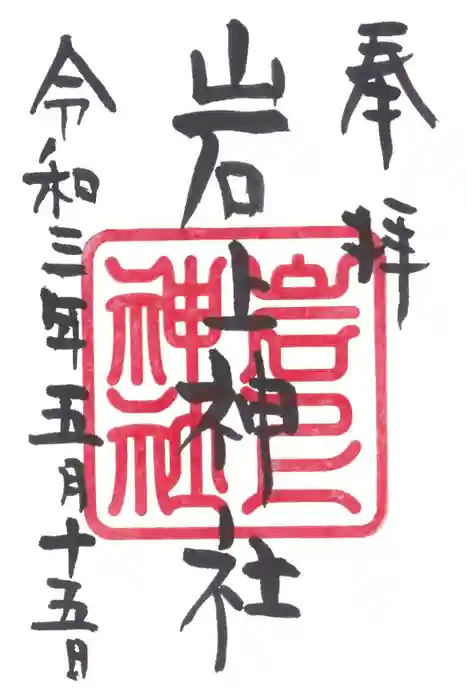 奉拝
岩上神社
岩上
神社
令和三年五月十五日